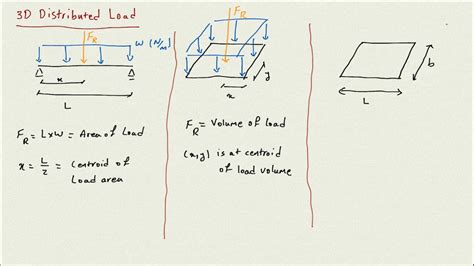 3D Distributed Load
F_R
W (N/m)
x
L
F_R = L×W = Area of Load
x = L/2 = Centroid of
Load area
F_R
y
x
F_R = Volume of load
(x,y) is at centroid
of load volume
b
L